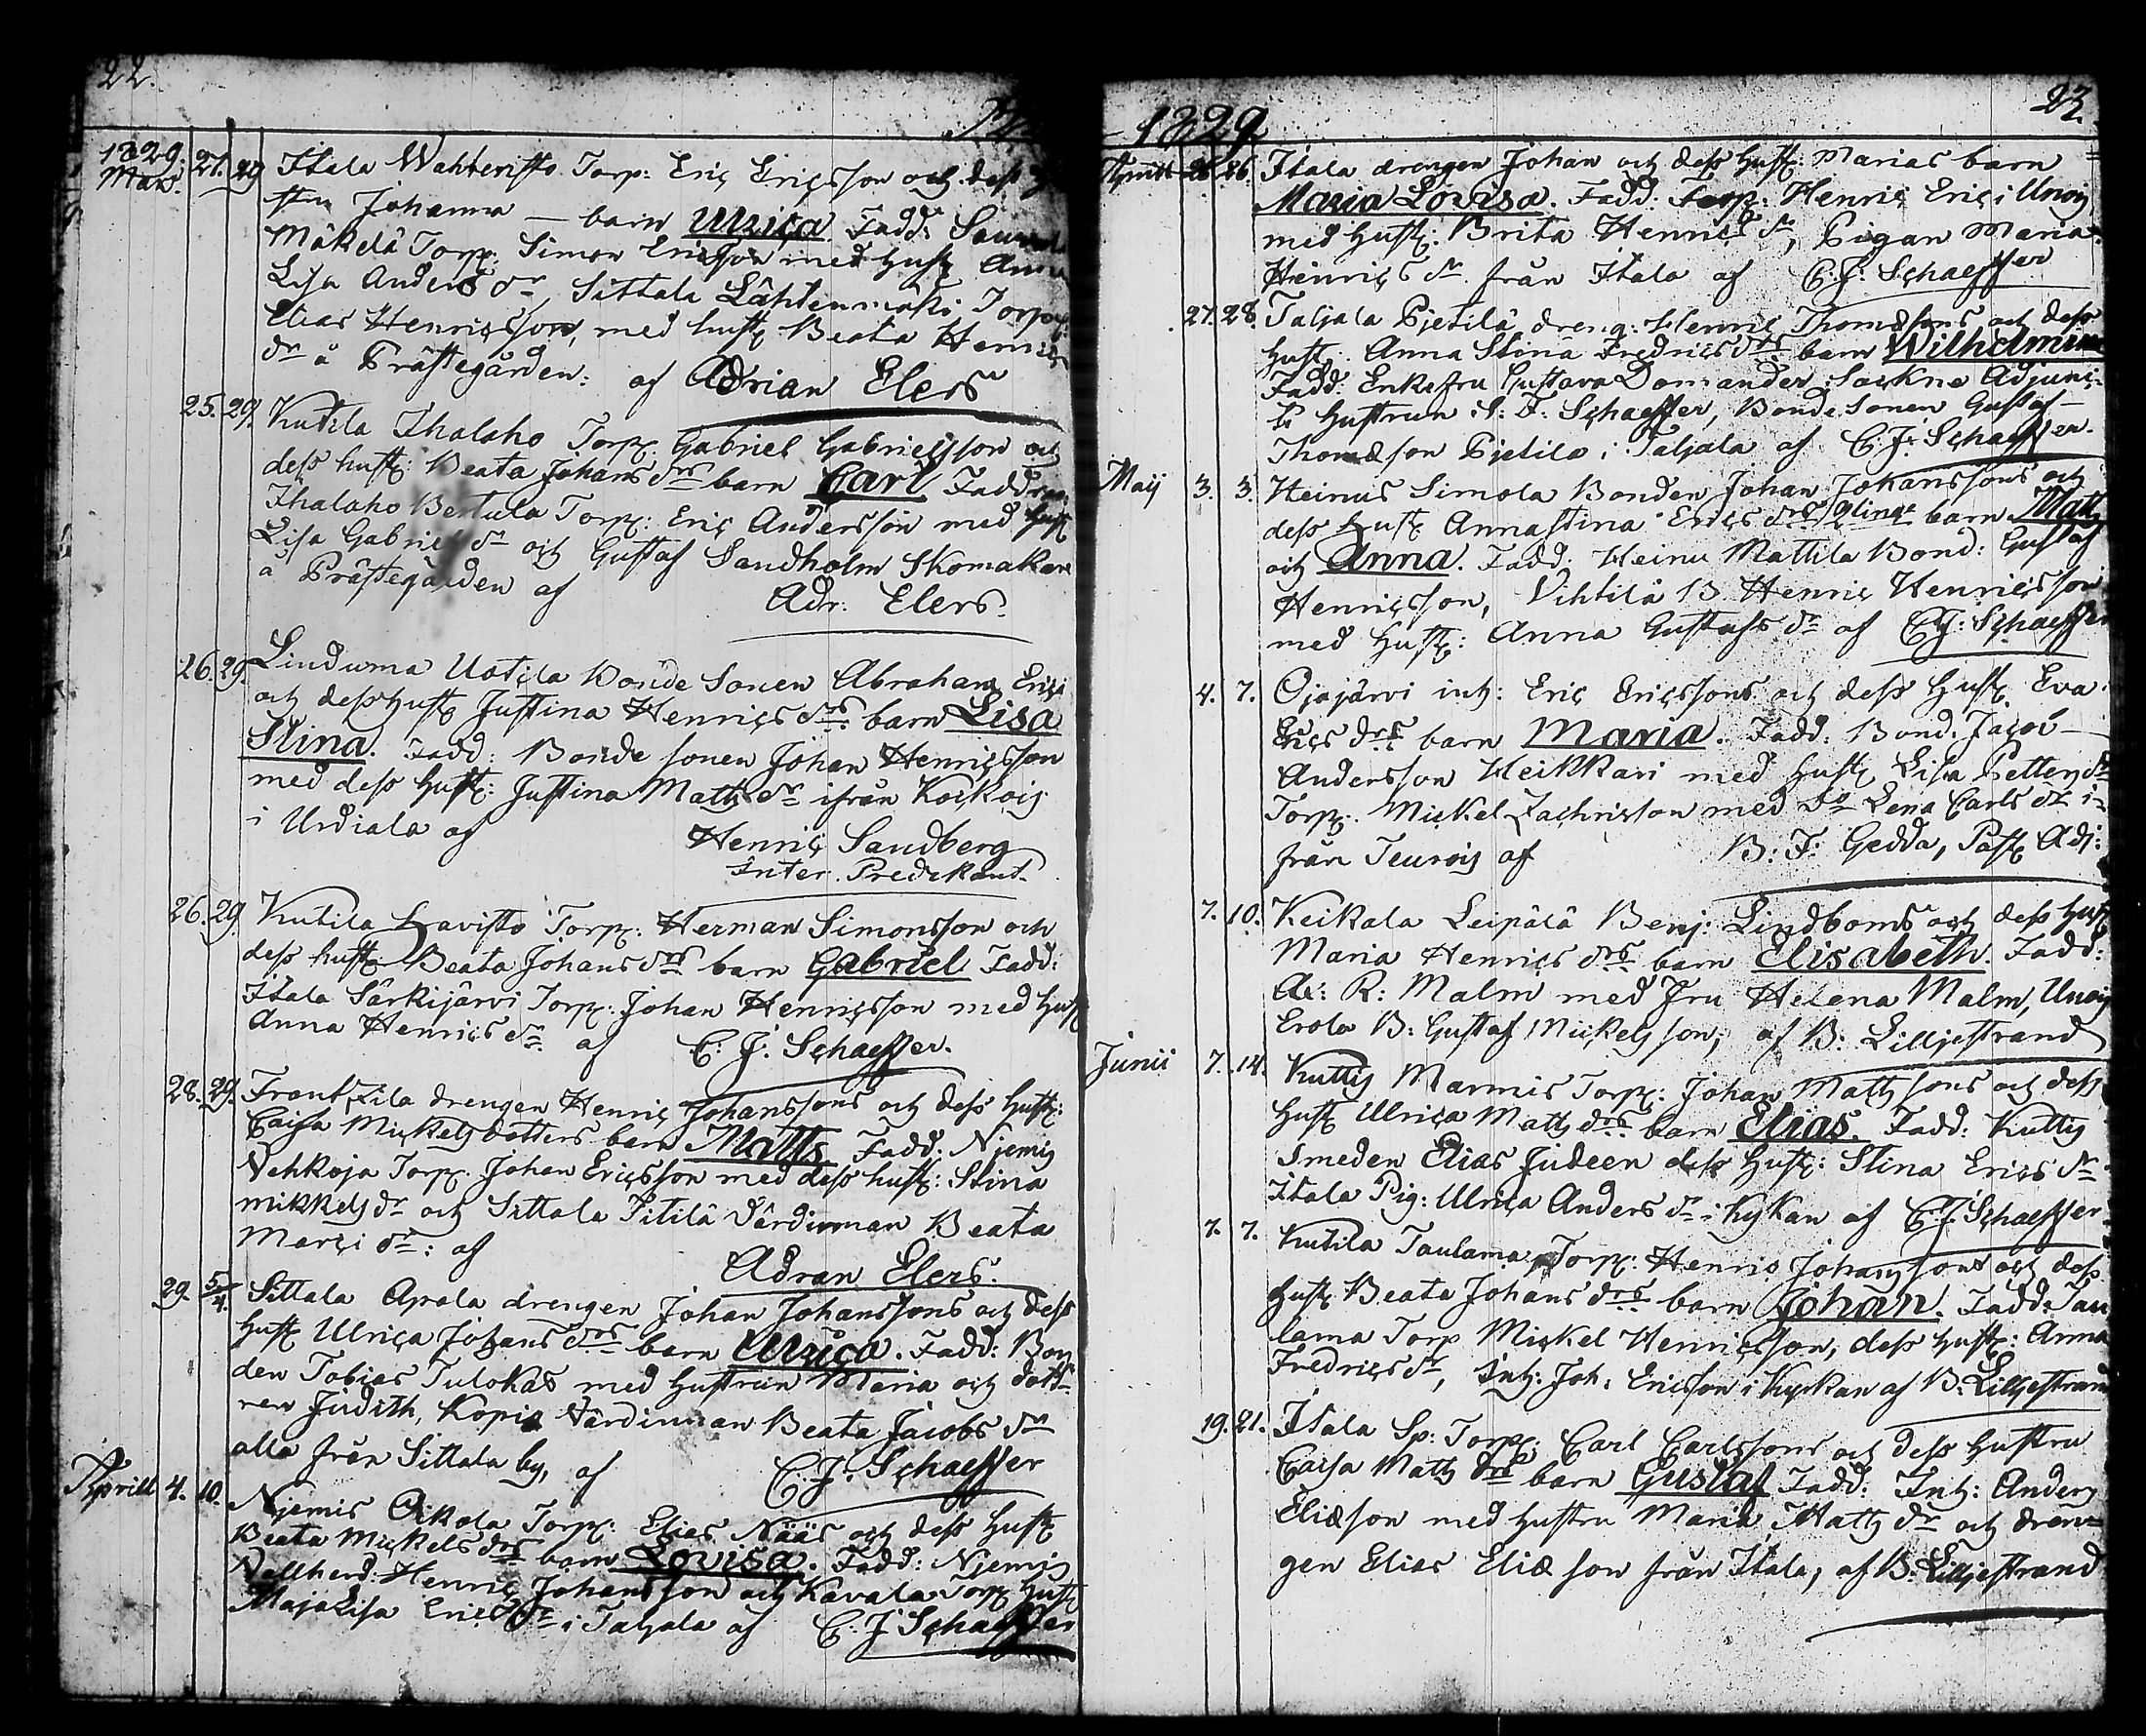 22.
1829. Mars. 21. 29 Itala Wahteristo Torp: Eric Ericsson och dess
stru Johanna — barn Ulrica. Fadd:
Mäkelä Torp: Simon Ericsson med hust: Anna
Lisa Anders dr, Sittala Lähtenmäki Torp:
Elias Henricsson, med hust: Beata Henrics
dr å Prästegården: af Adrian Elers
25. 29. Kutila Ihalaho Torp: Gabriel Gabrielsson och
dess hust: Beata Johans drs barn Carl Faddrar
Ihalaho Bertula Torp: Eric Andersson med hust
Lisa Gabriels dr och Gustaf Sandholm Skomakare
å Prästegården af Adr: Elers
26. 29. Linduma Uotila Bonde Sonen Abraham Erics
och dess hust: Justina Henrics drs barn Lisa
Stina. Fadd: Bonde sonen Johan Henricsson
med dess hust: Justina Matts dr ifrån Koikois
i Urdiala af Henric Sandberg
Inter. Predikant
26. 29. Kutila Lavisto Torp: Herman Simonsson och
dess hust: Beata Johans drs barn Gabriel Fadd:
Itala Särkijärvi Torp: Johan Henricsson med hust
Anna Henrics dr. af C. J: Schaeffer.
28. 29. Frantzila drengen Henric Johanssons och dess hust:
Caisa Mickels dotters barn Matts. Fadd: Njemis
Vehkoja Torp: Johan Ericsson med dess hust: Stina
mikkels dr och Sittala Fitilä Värdinnan Beata
Marci dr: af Adran Elers.
29. 5/4. Sittala Apola drengen Johan Johanssons och dess
hust: Ulrica Johans drs barn Ulrica. Fadd: Bon
den Tobias Tulokas med hustrun Maria och dott-
ren Judith, Kopis Värdinnan Beata Jacobs dr
alla från Sittala by, af C. J: Schaeffer
Aprill 4. 10. Njemis Oikola Torp: Elias Nääs och dess hust:
Beata Mickels drs barn Lovisa. Fadd: Njemis
Vallherd: Henric Johansson och Kavala Torp hust
Maja Lisa Erics dr i Taljala af C: J Schaeffer
1829 23.
Aprill 26. 26. Itala drengen Johan och dess hust: Marias barn
Maria Lovisa. Fadd: Torp: Henric Eric i Unois
med hust: Brita Henrics dr, Pigan Maria
Henrics dr från Itala af C: J: Schaeffer
27. 28. Taljala Pjetilä dreng: Henric Thomæsons och dess
hust: Anna Stina Fredrics drs barn Wilhelmina
Fadd: Enkefru Gustava Domander Sockne Adjunc-
ts hustrun S: F: Schaeffer, Bonde Sonen Gustaf
Thomæson Pjetilä i Taljala af C. J: Schaeffer.
Maij 3. 3. Heinus Simola Bonden Johan Johanssons och
dess hust: Anna Stina Erics drs barn Matts
och Anna. Fadd: Heinu Mattila Bond: Gustaf
Henricsson, Vihtilä B. Henric Henricsson
med hust: Anna Gustafs dr af C. J: Schaeffer
4. 7. Ojajärvi inh: Eric Ericssons och dess hust: Eva
Erics drs barn Maria. Fadd: Bond: Jacob
Andersson Heikkari med hust: Lisa Petters dr
Torp: Mickel Zachrisson med do Lena Carls dr i-
från Teurois af B: F: Gedda, Past: Adj:
7. 10. Keikala Leipälä Benj: Lindboms och dess hust
Maria Henrics drs barn Elisabeth. Fadd:
A: R: Malm med Fru Helena Malm, Unois
Erola B: Gustaf Mickelsson, af B. Lilljestrand
Junii 7. 14. Kuttis Marmis Torp: Johan Mattssons och dess
hust Ulrica Matts drs barn Elias. Fadd: Kuttis
Smeden Elias Judeen dess hust: Stina Erics dr
Itala Pig: Ulrica Anders dr i Kyrkan af C. J. Schaeffer
7. 7. Kutila Taulama Torp: Henric Johanssons och dess
hust Beata Johans drs barn Johan. Fadd: Tau
lama Torp Mickel Henricsson, dess hust: Anna
Fredrics dr, Inh: Joh: Ericsson i Kyrkan af B: Lilljestrand
19. 21. Itala Sp: Torp: Carl Carlssons och dess hustru
Caisa Matts drs barn Gustaf Fadd: Inh: Anders
Eliæson med hustru Maria Matts dr och dren-
gen Elias Eliæson från Itala, af B: Lilljestrand